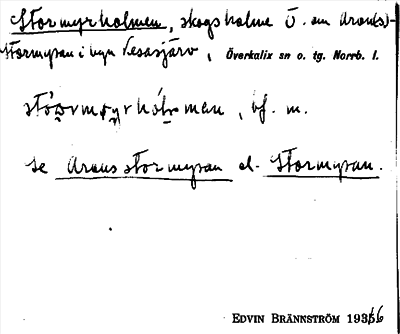 Stormyrholmen, skogsholme Ö. om Arons)-
Stormyran i byn Vesasjärv, Överkalix sn o. tg. Norrb. l.
hólmən, bf. m.
se Arons stormyran el. Stormyran.
EDVIN BRÄNNSTRÖM 1936